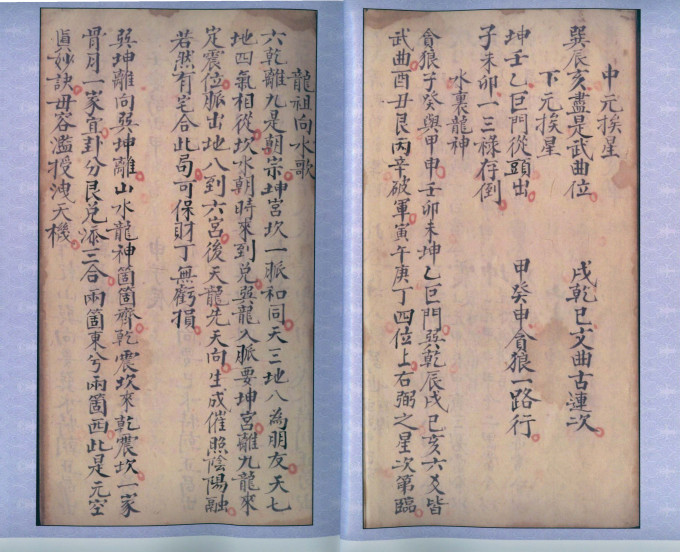 中元挨星
巽辰亥盡是武曲位　戌乾巳文曲古漣次
下元挨星
坤壬乙巨門從頭出　甲癸申貪狼一路行
子未卯一三祿存倒
水裏龍神
貪狼子癸與甲申壬卯未坤乙巨門巽乾辰戌巳亥六爻皆
武曲酉丑艮丙辛破軍寅午庚丁四位上右弼之星次第臨
龍祖向水歌
六乾離九是朝宗坤宮坎一脈和同天三地八為朋友天七
地四氣相從坎水朝時來到兌巽龍入脈要坤宮離九龍來
定震位脈出地八到六宮後天龍先天向生成催照陰陽融
若然有宅合此局可保財丁無虧損
巽坤離向巽坤離山水龍神箇箇齊乾震坎來乾震坎一家
骨月一家宜卦分艮兌添三合兩箇東兮兩箇西此是元空
眞妙訣毋容濫授洩天機